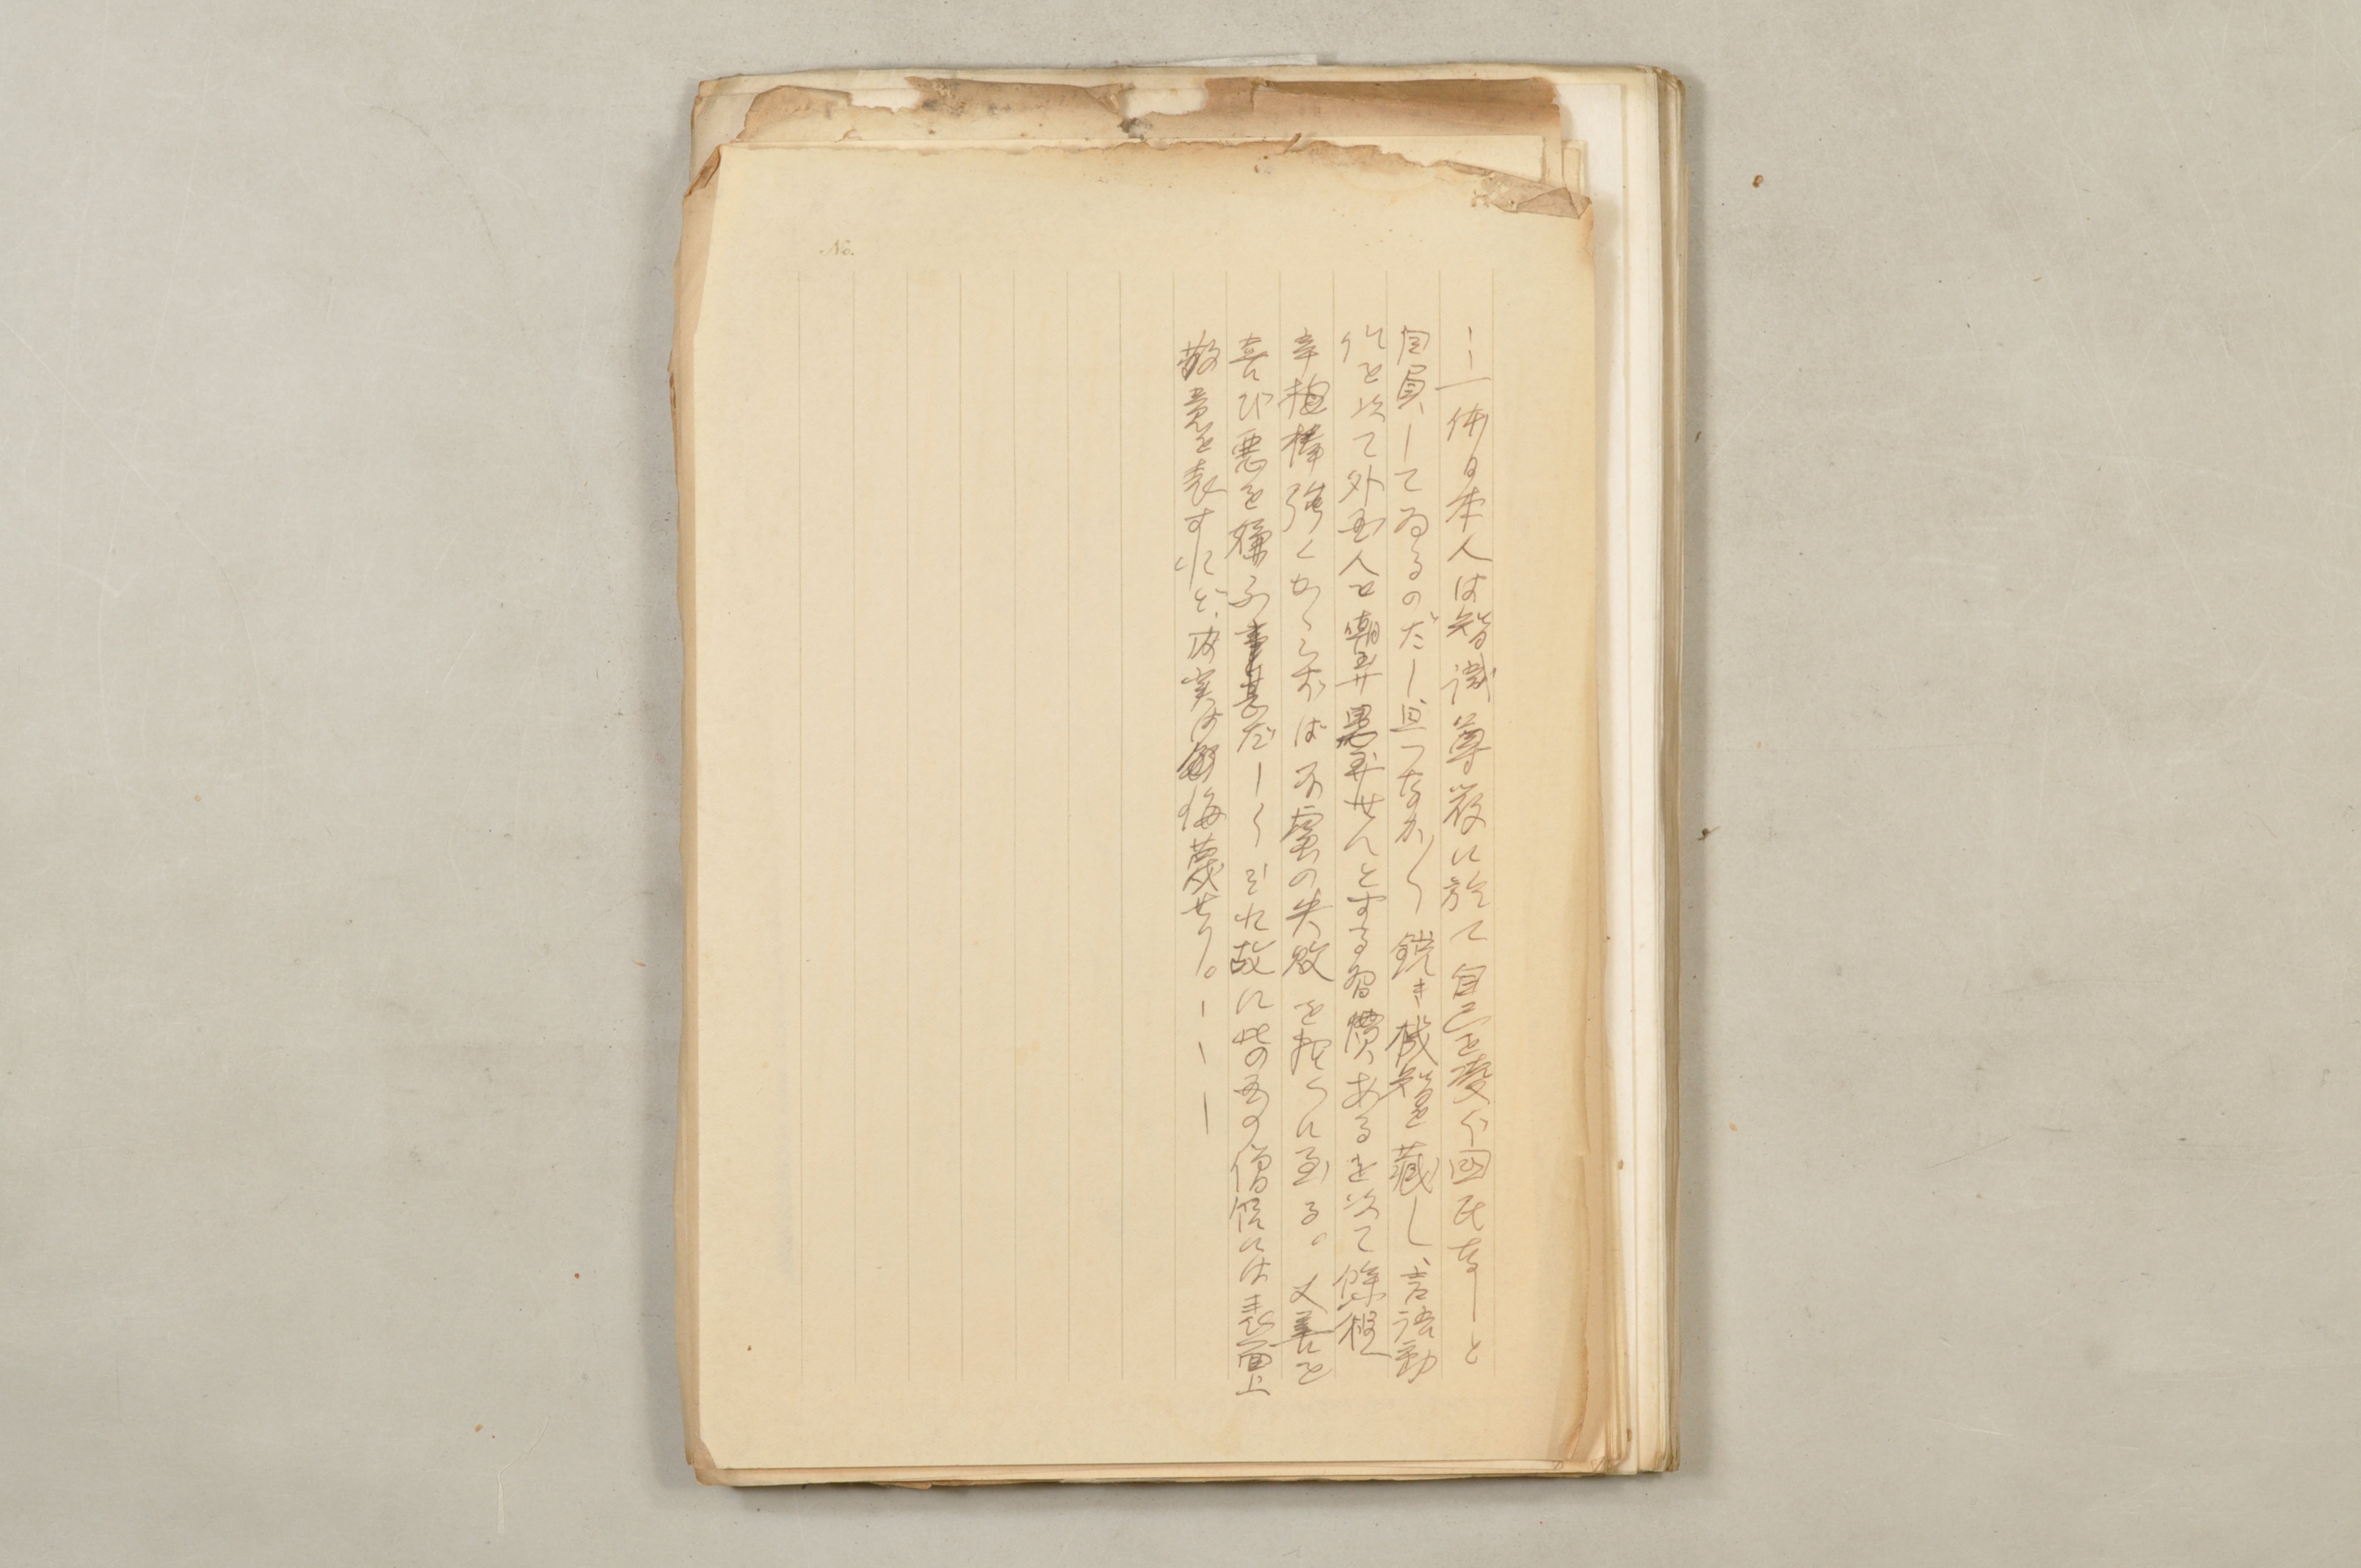 No.
――一体日本人は智識尊敬に於て自己を愛する国民なしと
自負してゐるのだし、且つなか〱鋭き機智を蔵し、言語動
作を以て外国人を嘲弄愚弄せんとする習慣あるを以て餘程
辛抱棒強くかゝらねば不慮の失敗を招くに至る。又善を
喜び悪を嫌ふ事甚だしく それ故に此の國の僧侶には表面上
敬意を表すれど、内実は侮蔑せり。―――